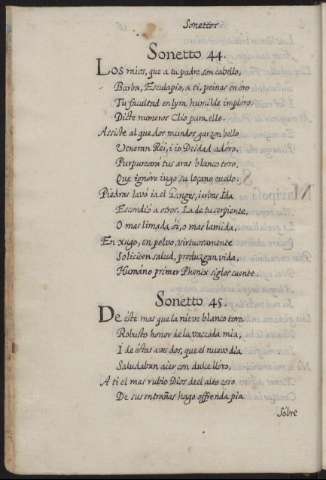 Sonettos
Sonetto 44.
Los mios, que a tu padre son cabello,
Barba, Esculapio, a ti, peinas en oro
Tu facultad en lyra humilde imploro
Dicte numeros Clio para ello.
Assiste al que dos mundos, garzon bello
Veneran Rei, i io Deidad adoro,
Purpureará tus aras blanco toro,
Que ignore iugo su loçano cuello.
Piedras lavò ia el Ganges, iervas Ida
Escondiò a otros. La de tu serpiente,
O mas limada si, o mas lamida,
En xugo, en polvo, virtuosamente
Soliciten salud, produzgan vida,
Humano primer Phenix siglos cuente.
Sonetto 45.
De este mas que la nieve blanco toro
Robusto honor de la vaccada mia,
I de estas aves dos, que al nuevo dia
Saludaban aier con dulce lloro,
A ti el mas rubio Dios del alto coro
De sus entrañas hago offrenda pia
Sobre